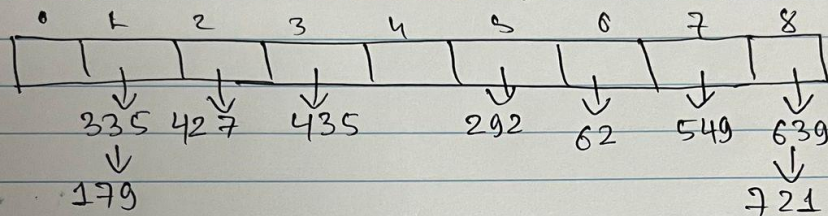 0 1 2 3 4 5 6 7 8
335 427 435 292 62 549 639
179 721